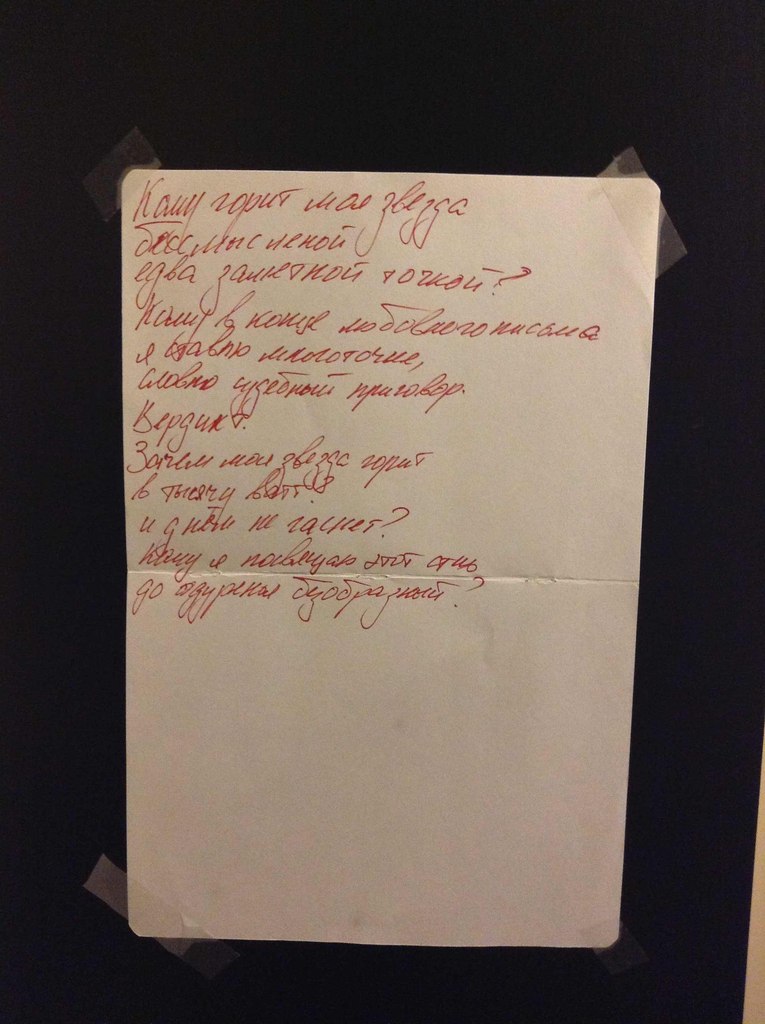 Кому горит моя звезда
бессмысленой
едва заметной точкой?
Кому в конце любовного письма
я ставлю многоточие,
словно судебный приговор.
Вердикт.
Зачем моя звезда горит
в тысячу ватт?
и днём не гаснет?
Кому я посвящаю этот стих
до одуренья безобразный?